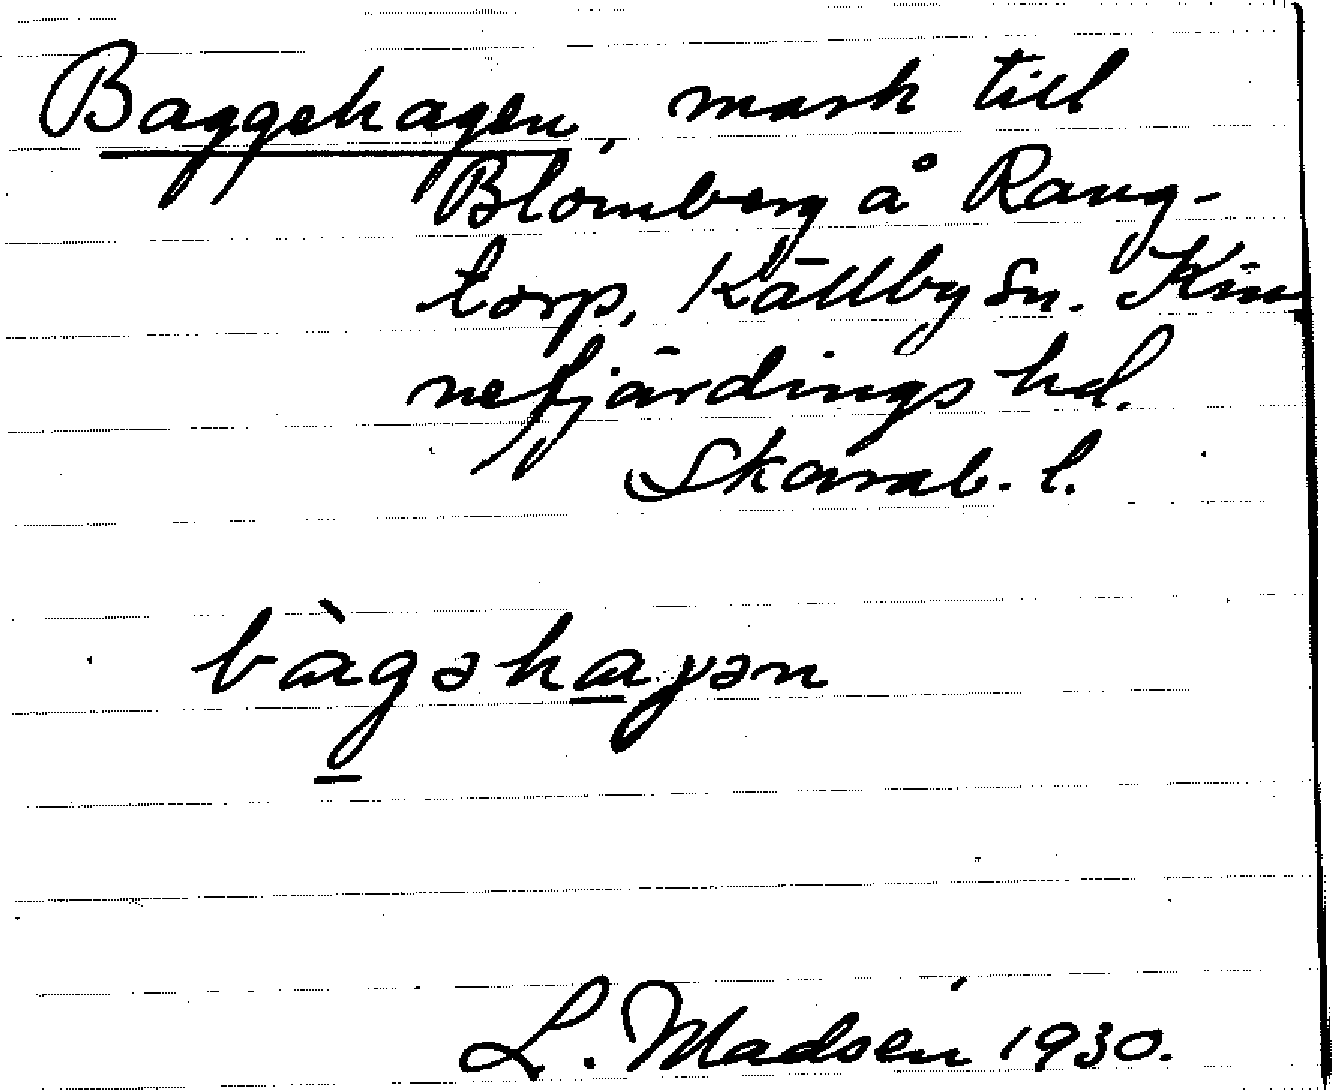 Baggehagen, mark till
Blomberg å Rang-
torp, Källby sn. Kin
nefjärdings hd.
Skarab. l.
bàgəhaɣən
L. Madsén 1930.